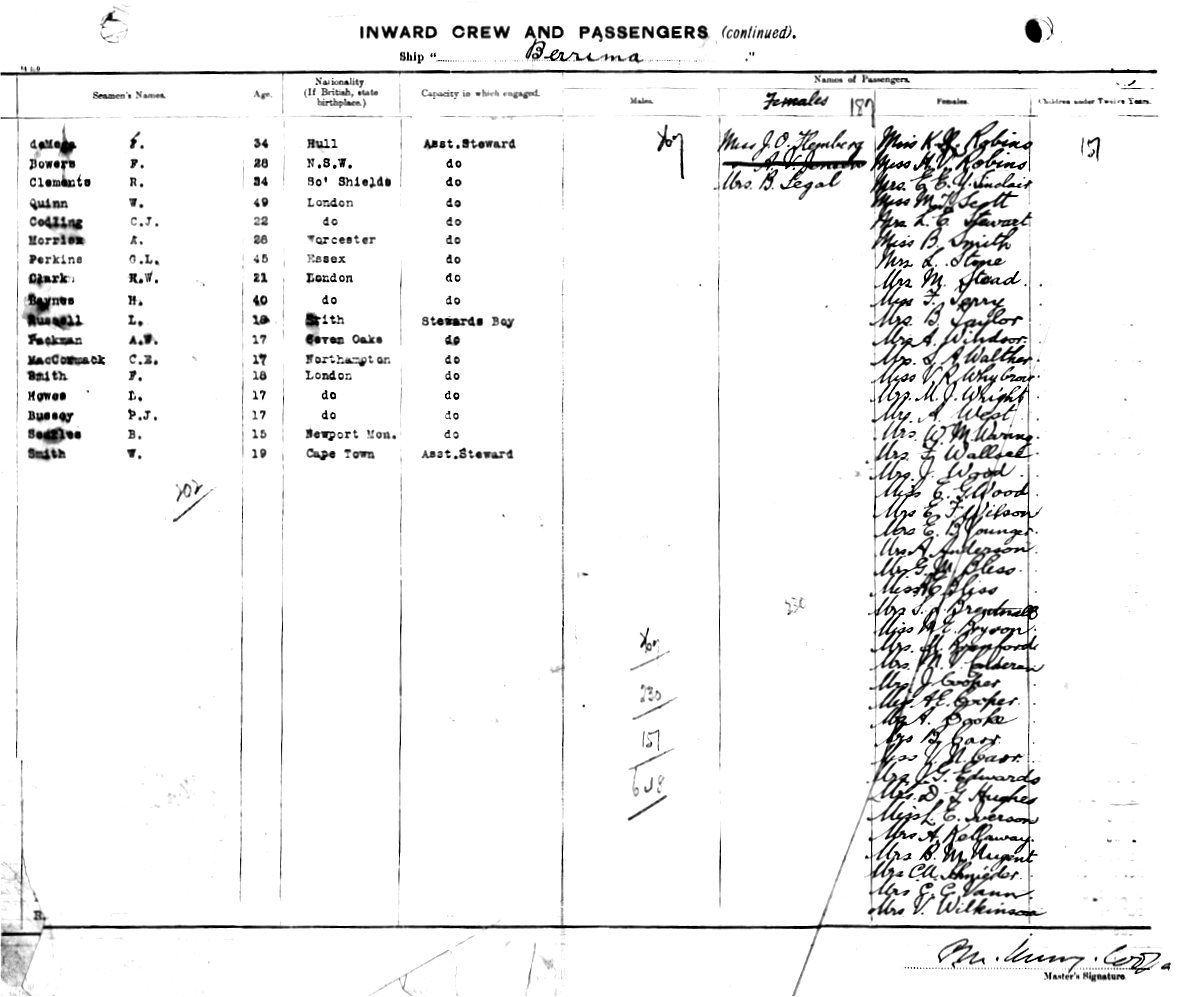 INWARD CREW AND PASSENGERS (continued).
Ship "Berrima."
Seamen's Names. Age. Nationality (If British, state birthplace.) Capacity in which engaged. Names of Passengers.
Males. Females 187 Females. Children under Twelve Years.
E. 34 Hull Asst.Steward
Bowers F. 28 N.S.W. do
Clements R. 34 So' Shields do
Quinn W. 49 London do
Codling C.J. 22 do do
A. 26 Worcester do
Perkins G.L. 45 Essex do
Clark R.W. 21 London do
Baynes H. 40 do do
Russell L. 18 Erith Stewards Boy
Packman A.W. 17 Seven Oaks do
MacCormack C.E. 17 Northampton do
Smith F. 18 London do
Howes L. 17 do do
Bussey P.J. 17 do do
B. 15 Newport Mon. do
Smith W. 19 Cape Town Asst.Steward
202
Miss J. O.
Mrs. B. Segal
Miss K. Robins
Miss A. V. Robins
Mrs. E. E. Y. Sinclair
Miss M. Scott
Mrs. L. E. Stewart
Miss B. Smith
Mrs L. Stone
Mrs M. Stead
Miss F. Terry
Mrs. B. Taylor
Mrs A. Windsor
Mrs. S. A. Walther
Miss V. R. Whybrow
Mrs. M. J. Wright
A. West
Mrs. W. M. Waring
Mrs. F. Wallace
Mrs. J. Wood
Miss E. G. Wood
Mrs E. F. Wilson
Mrs E. B. Younger
Mrs A. Anderson
Mrs G. M. Bless
Miss Bliss
Mrs S. A.
Miss M. E. Bryson
Mrs. M.
Mrs. M. V.
Mrs. J. Cooper
A. E. Cooper
A. Cooke
Mrs B. Carr
Miss V. N. Carr
Mrs. J. G. Edwards
Mrs. D. G. Hughes
Miss L. E. Iverson
Mrs A. Kellaway
Mrs B. M. Nugent
Mrs C. A.
Mrs E. C. Vann
Mrs V. Wilkinson
151
230
230
151
618
Master's Signature.